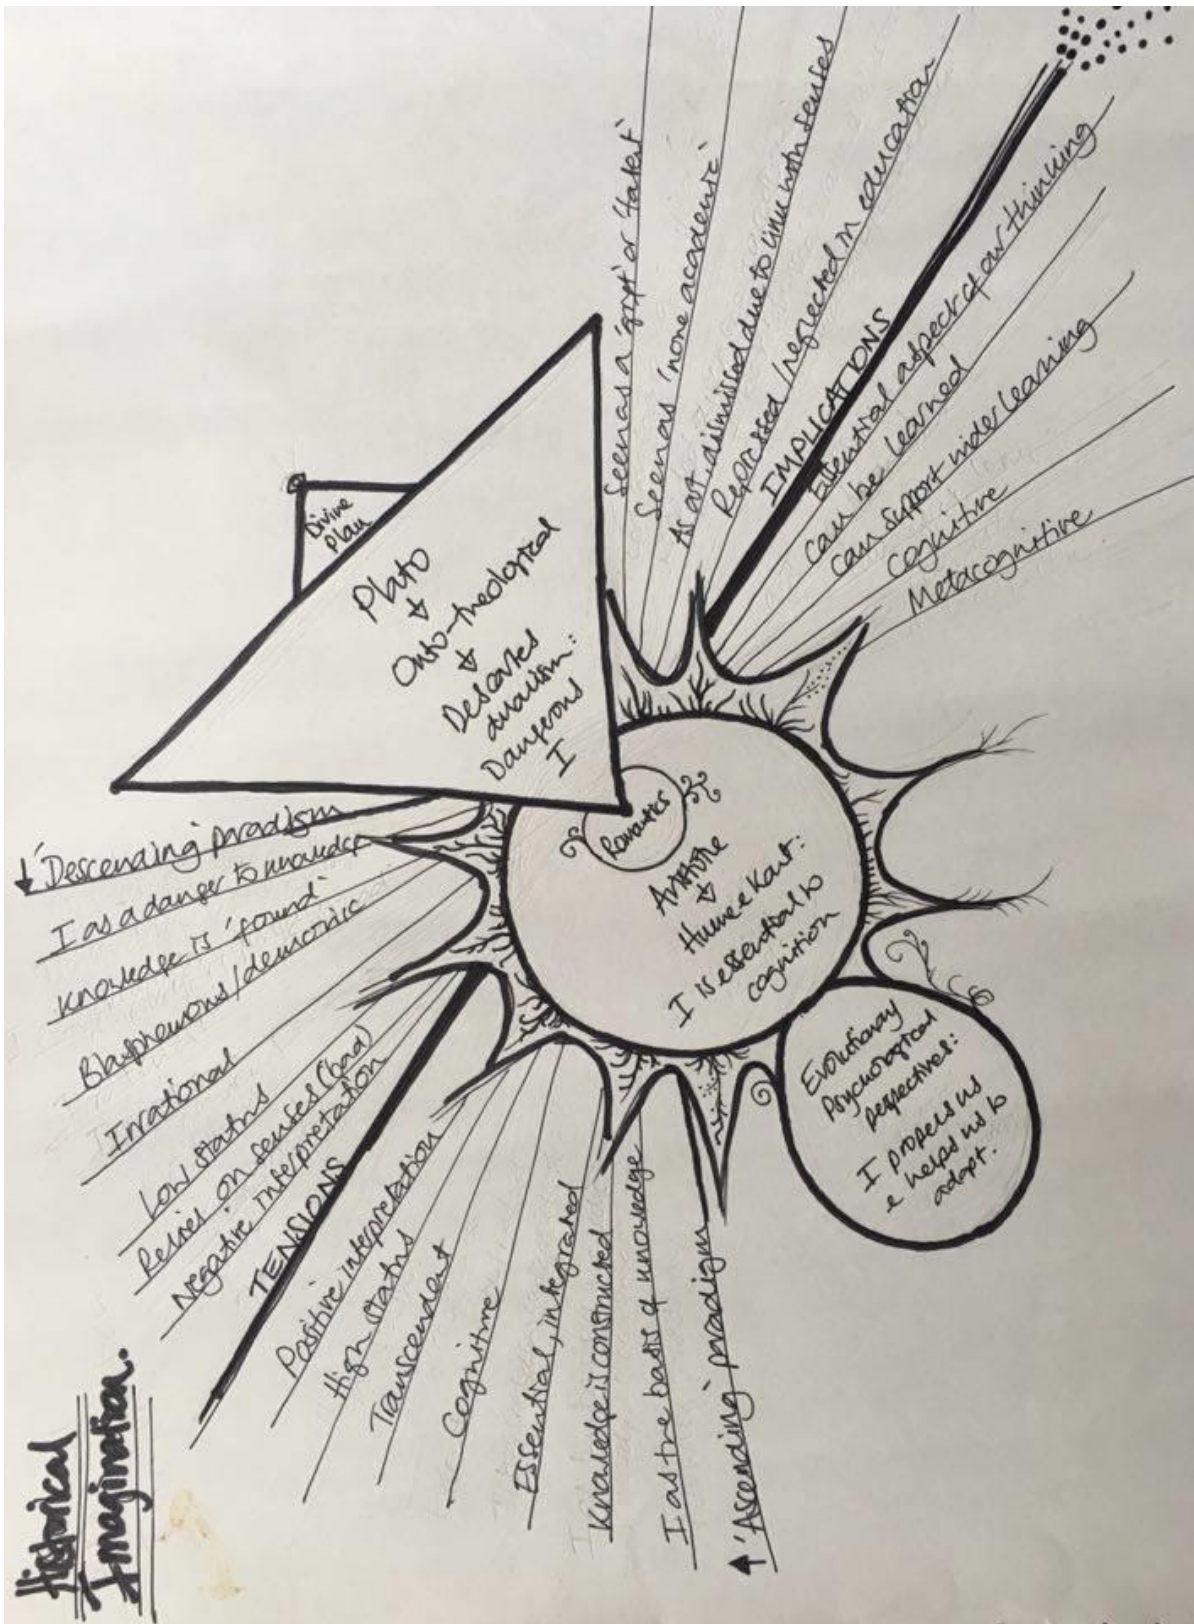 Historical
Imagination.
Divine
Plan
Plato
↓
Onto-theological
↓
Descartes
dualism:
Dangerous
I
Romantics
Aristotle
↓
Hume & Kant:
I is essential to
cognition
Evolutionary
Psychological
perspectives:
I propels us
& helps us to
adapt.
↓ 'Descending' paradigm
I as a danger to knowledge
Knowledge is 'found'
Blasphemous/demonic
Irrational
Low status
Relies on senses (bad)
Negative interpretation
TENSIONS
Positive interpretation
High status
Transcendent
Cognitive
Essential, integrated
Knowledge is constructed
I as the basis of knowledge
↑ 'Ascending' paradigm
Seen as a 'gift' or 'talent'
Seen as 'none academic'
As art, dismissed due to links with senses
Repressed/neglected in education
IMPLICATIONS
Essential aspect of our thinking
can be learned
can support wider learning
cognitive
Metacognitive